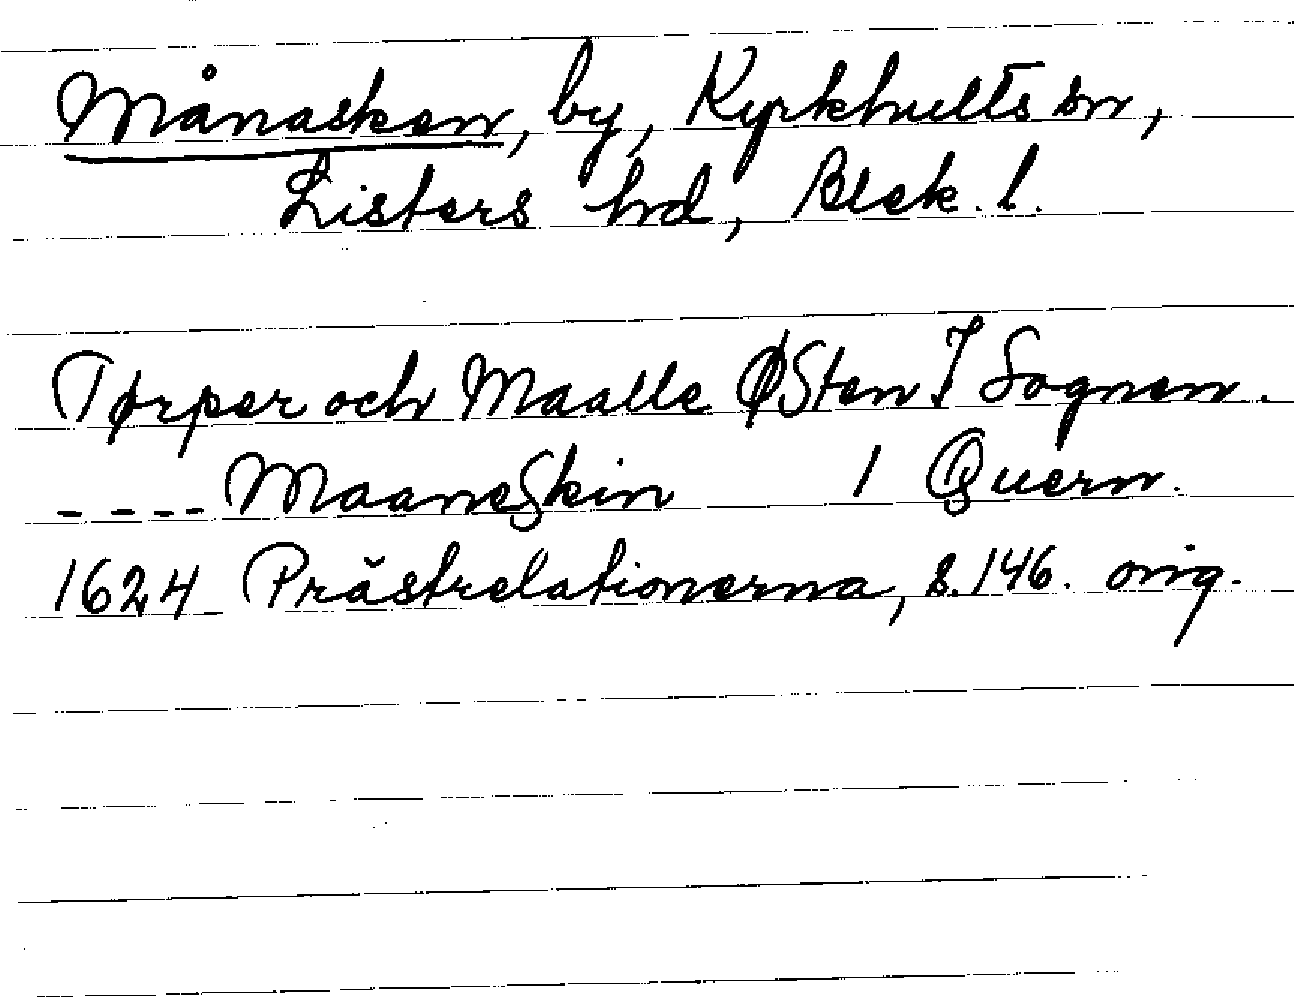 Månasken, by, Kyrkhults sn,
Listers hd, Blek. l.
Tørper och Maalle ØSten I Sognen.
---- MaaneSkin 1 Quern.
1624 Prästrelationerna, s. 146. orig.